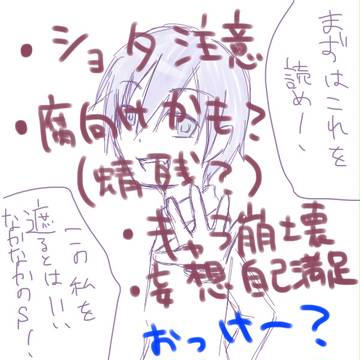 まずはこれを
読め！、
・ショタ注意
・腐向けかも？
(蜻残？)
・きゃら崩壊
・妄想自己満足
おっけー？
この私を
遮るとはいい
なかなかのS！、